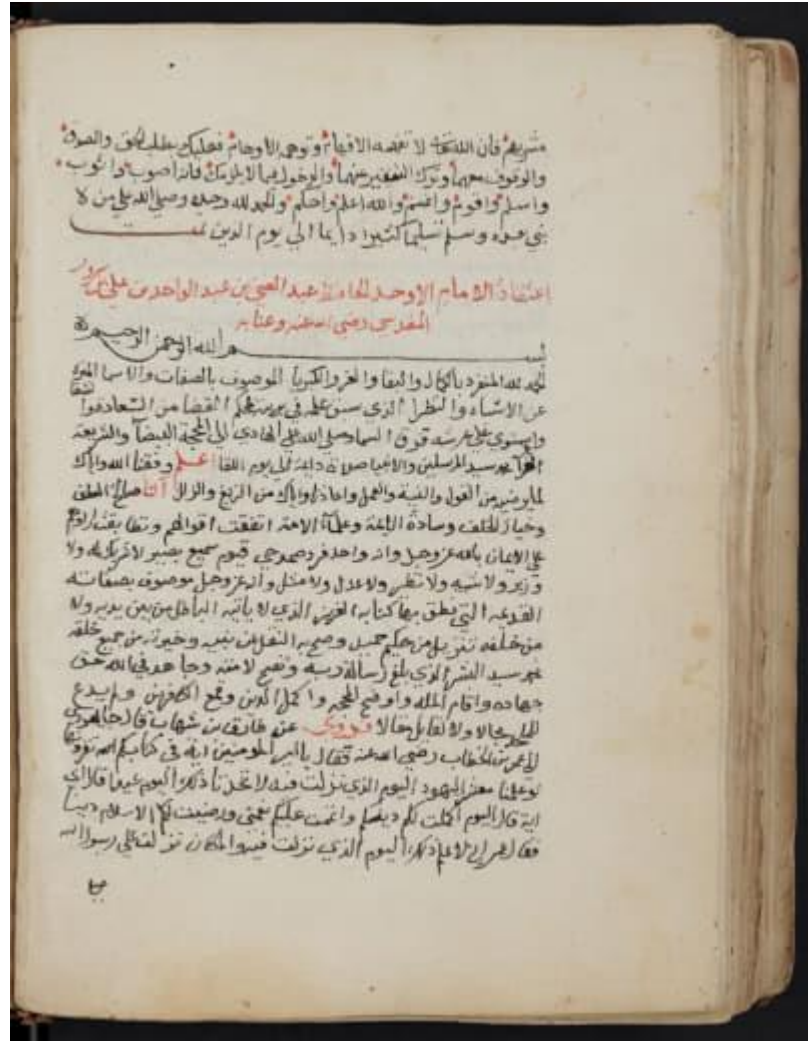 مشربهم فان الله تعالى لا تفهمه الافهام وتوهمه الاوهام فعليك بطلب الحق والصدق
والوقوف معهما وترك التقصير عنهما والدخول فيما لا يلزمك فانه اصوب واثوب
واسلم واقوم واغنم والله اعلم واحكم والحمد لله وحده وصلى الله على من لا
نبي بعده وسلم تسليما كثيرا دايما الي يوم الدين تمت
اعتقاد الامام الاوحد الحافظ عبد الغني بن عبد الواحد بن علي بن سرور
المقدسي رضي الله عنه وعنا به
بسم الله الرحمن الرحيم
الحمد لله المنفرد بالكمال والبقا والعز والكبريا الموصوف بالصفات والاسما المنزه
عن الاشباه والنظرا الذي سبق علمه في بريته بمحكم القضا من السعادة والشقا
واستوى على عرشه فوق السما وصلى الله على الهادي الى المحجة البيضا والشريعة
الغرا محمد سيد المرسلين والانبيا صلاة دايمة الى يوم اللقا اعلم وفقنا الله واياك
لما يرضيه من القول والنية والعمل واعاذنا واياك من الزيغ والزلل ان صالح السلف
وخيار الخلف وسادة الايمة وعلماء الامة اتفقت اقوالهم وتطابقت اراؤهم
على الايمان بالله عز وجل وانه واحد فرد صمد حي قيوم سميع بصير لا شريك له ولا
وزير ولا شبيه ولا نظير ولا عدل ولا مثل وانه عز وجل موصوف بصفاته
القديمة التي نطق بها كتابه العزيز الذي لا ياتيه الباطل من بين يديه ولا
من خلفه تنزيل من حكيم حميد وصح به النقل عن نبيه وخيرته من جميع خلقه
محمد سيد البشر الذي بلغ رسالة ربه ونصح لامته وجاهد في الله حق
جهاده واقام الملة واوضح المحجة واكمل الدين وقمع الكافرين ولم يدع
لملحد مجالا ولا لقايل مقالا فروى عن طارق بن شهاب قال جا يهودي
الى عمر بن الخطاب رضي الله عنه فقال يا امير المومنين اية في كتابكم تقرونها
لو علينا معشر اليهود اليوم الذي نزلت فيه لاتخذنا ذلك اليوم عيدا قال اي
اية قال اليوم اكملت لكم دينكم واتممت عليكم نعمتي ورضيت لكم الاسلام دينا
فقال عمر اني لاعلم ذلك اليوم الذي نزلت فيه والمكان نزلت على رسول الله